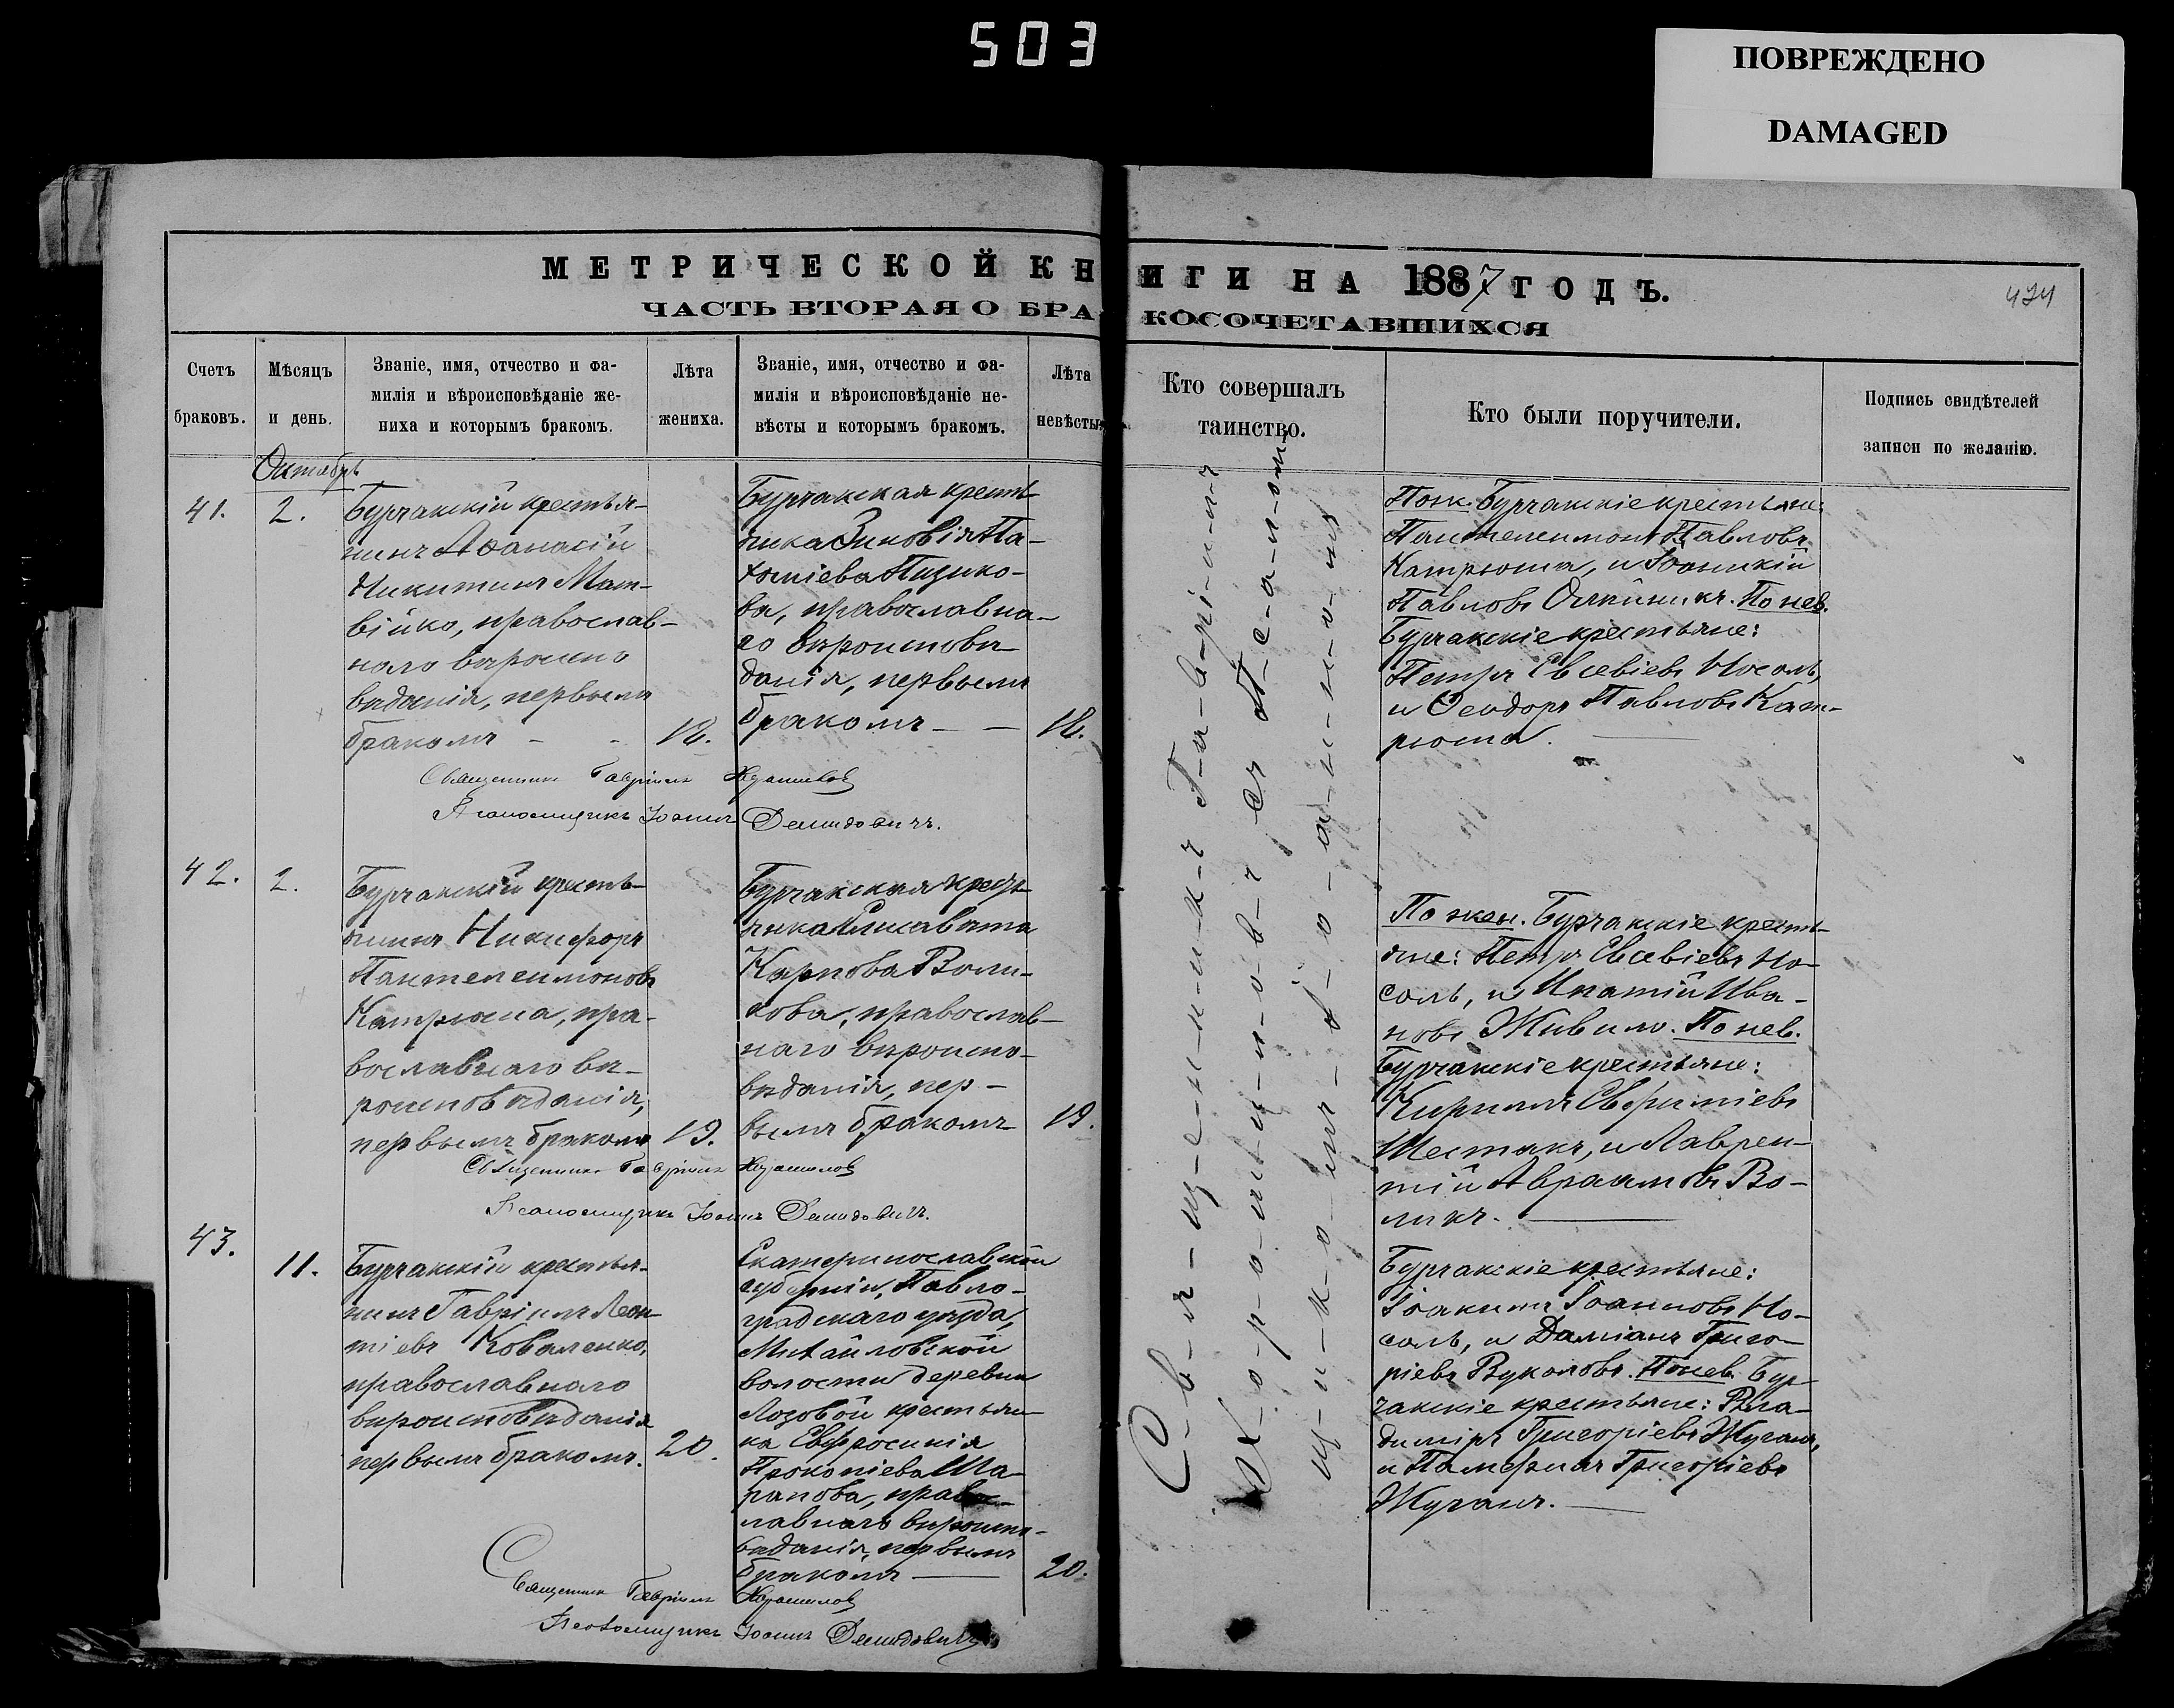 503
ПОВРЕЖДЕНО
DAMAGED
МЕТРИЧЕСКОЙ КНИГИ НА 1887 ГОДЪ.
ЧАСТЬ ВТОРАЯ О БРАКОСОЧЕТАВШИХСЯ
Счетъ
браковъ.
Мѣсяцъ
и день.
Званіе, имя, отчество и фа-
милія и вѣроисповѣданіе же-
ниха и которымъ бракомъ.
Лѣта
жениха.
Званіе, имя, отчество и фа-
милія и вѣроисповѣданіе не-
вѣсты и которымъ бракомъ.
Лѣта
невѣсты.
Кто совершалъ
таинство.
Кто были поручители.
Подпись свидѣтелей
записи по желанію.
Октябрь
41.
2.
Бурчакскій крестья-
нинъ Аѳанасій
Никитинъ Мат-
війко, православ-
наго вѣроиспо
вѣданія, первымъ
бракомъ - -
18.
Бурчакская кресть-
янка Зиновія Па-
хоміева Пузико-
ва, православна-
го вѣроисповѣ-
данія, первымъ
бракомъ - -
18.
Пож. Бурчакскіе крестьяне:
Пантелеимонъ Павловъ
Катрюша, и Іоанникій
Павловъ Олійникъ. По нев.
Бурчакскіе крестьяне:
Петръ Евсевіевъ Носоль,
и Ѳеодоръ Павловъ Кат-
рюша.
Священникъ Гавріилъ
Псаломщикъ Іоаннъ Демидовичъ.
42.
2.
Бурчакскій кресть-
янинъ Никифоръ
Пантелеимоновъ
Катрюша, пра-
вославнаго вѣ-
роисповѣданія,
первымъ бракомъ
19.
Бурчакская кресть-
янка Елисавета
Карпова Воли-
кова, православ-
наго вѣроиспо-
вѣданія, пер-
вымъ бракомъ
19.
По жен. Бурчакскіе кресть-
яне: Петръ Евсевіевъ Но-
соль, и Ипатій Ива-
новъ Живило. По нев.
Бурчакскіе крестьяне:
Кириллъ Евфиміевъ
Шестакъ, и Лаврен-
тій Авраамовъ Во-
ликъ.
Священникъ Гавріилъ
Псаломщикъ Іоаннъ Демидовичъ.
43.
11.
Бурчакскій крестья-
нинъ Гавріилъ Леон-
тіевъ Коваленко,
православнаго
вѣроисповѣданія
первымъ бракомъ.
20.
Екатеринославской
губерніи, Павло-
градскаго уѣзда,
Михайловской
волости деревни
Лозовой крестьян-
ка Евфросинія
Прокопіева Ша-
рапова, правос-
лавнаго вѣроиспо-
вѣданія, первымъ
бракомъ
20.
Бурчакскіе крестьяне:
Іоакимъ Іоанновъ Но-
соль, и Даміанъ Григо-
ріевъ Вуколовъ. По нев. Бур-
чакскіе крестьяне: Вла-
диміръ Григоріевъ Жуганъ,
и Памфилъ Григоріевъ
Жуганъ.
Священникъ Гавріилъ
Псаломщикъ Іоаннъ Демидовичъ
С-в-я-щ-е-н-н-и-к-ъ Г-а-в-р-і-и-л-ъ
съ П-с-а-л-о-м-
щ-и-к-о-м-ъ І-о-а-н-н-о-м-ъ